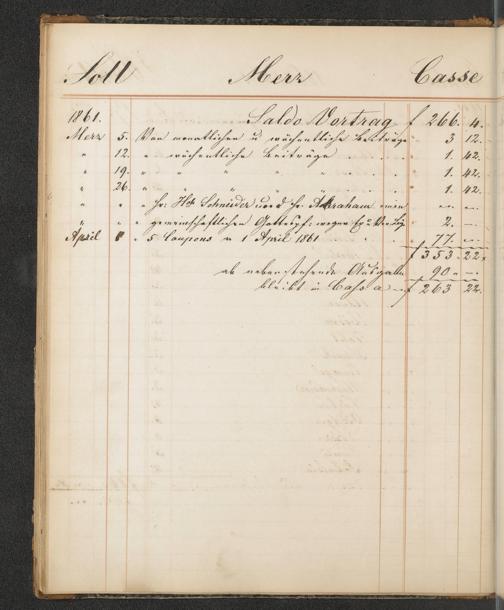 Soll Merz Casse
1861. Saldo Vortrag f 266. 4.
Merz 5. Von monatlichen u wöchentliche Beiträge 3 12.
" 12. " wöchentliche Beiträge . . . 1. 42.
" 19. " " " . . 1. 42.
" 26. " " " . . 1. 42.
" " " Hr: Schneider und Hr: Abraham einen — —
" " " gemeinschaftlichen wegen 2. —
April " 5 Coupons a 1 April 1861 . . . 77. —
f 353 22.
ab nebenstehende Ausgaben 90 " —
bleibt in Cassa f 263 22.